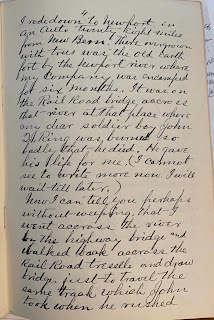 4
I rode down to Newport, in
an auto twenty eight miles
from New Bern. There overgrown
with trees was the old Earth
fort by the newport river where
my company was encamped
for six months. It was on
the Rail Road bridge, accross
that river at that place where
my dear soldier boy John
H. King was burned so
badly that he died. He gave
his life for me. (I cannot
see to write more now. I will
wait till later.)
Now I can tell you perhaps
without weeping, that I
went accross the river
by the highway bridge and
walked back accross the
Rail Road tressle and draw
bridge, just to travel the
same track which John
took when he rushed